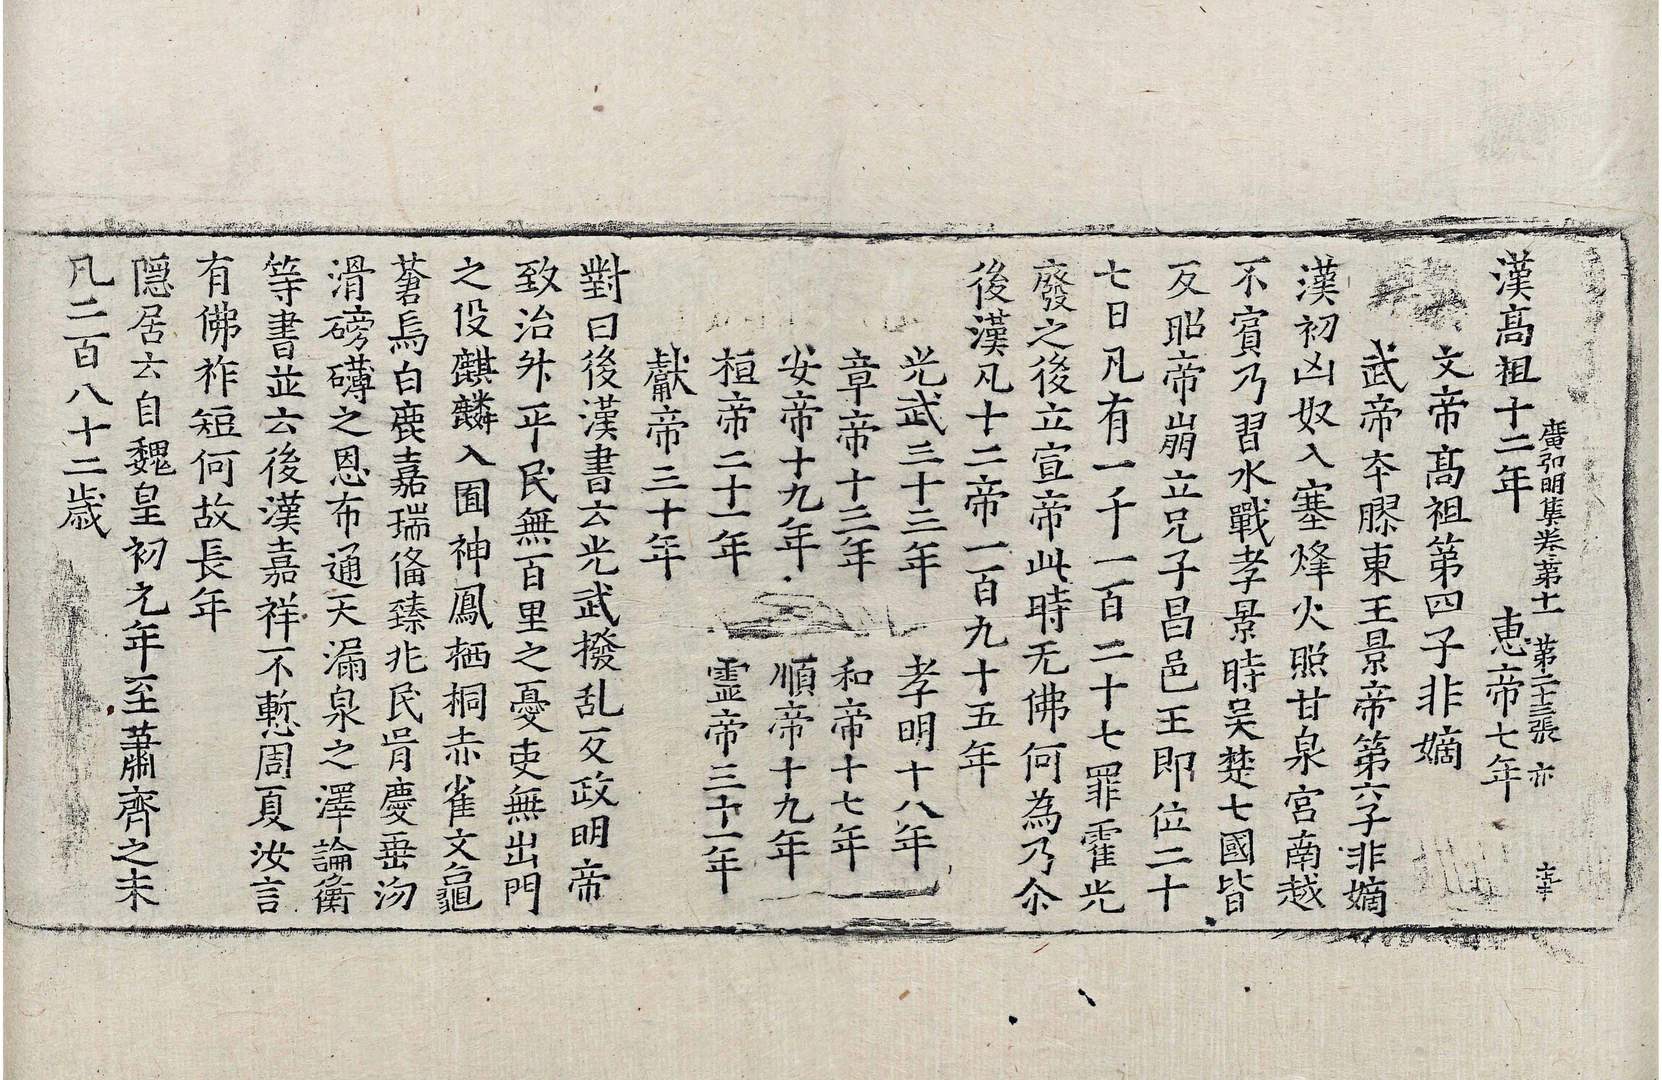 漢高祖十二年 惠帝七年
廣弘明集卷第十一 第二十三張 亦
文帝高祖第四子非嫡
武帝夲膠東王景帝第六子非嫡
漢初凶奴入塞烽火照甘泉宮南越
不賓乃習水戰孝景時吴楚七國皆
反昭帝崩立兄子昌邑王即位二十
七日凡有一千一百二十七罪霍光
廢之後立宣帝此時无佛何為乃尒
後漢凡十二帝一百九十五年
光武三十三年 孝明十八年
章帝十三年 和帝十七年
安帝十九年 順帝十九年
桓帝二十一年 靈帝三十一年
獻帝三十年
對曰後漢書云光武撥乱反政明帝
致治外平民無百里之憂吏無出門
之役麒麟入囿神鳳栖桐赤雀文龜
蒼烏白鹿嘉瑞俻臻兆民胥慶垂沕
滑磅礴之恩布通天漏泉之澤論衡
等書並云後漢嘉祥不慙周夏汝言
有佛祚短何故長年
隠居云自魏皇初元年至蕭齊之末
凡二百八十二歳